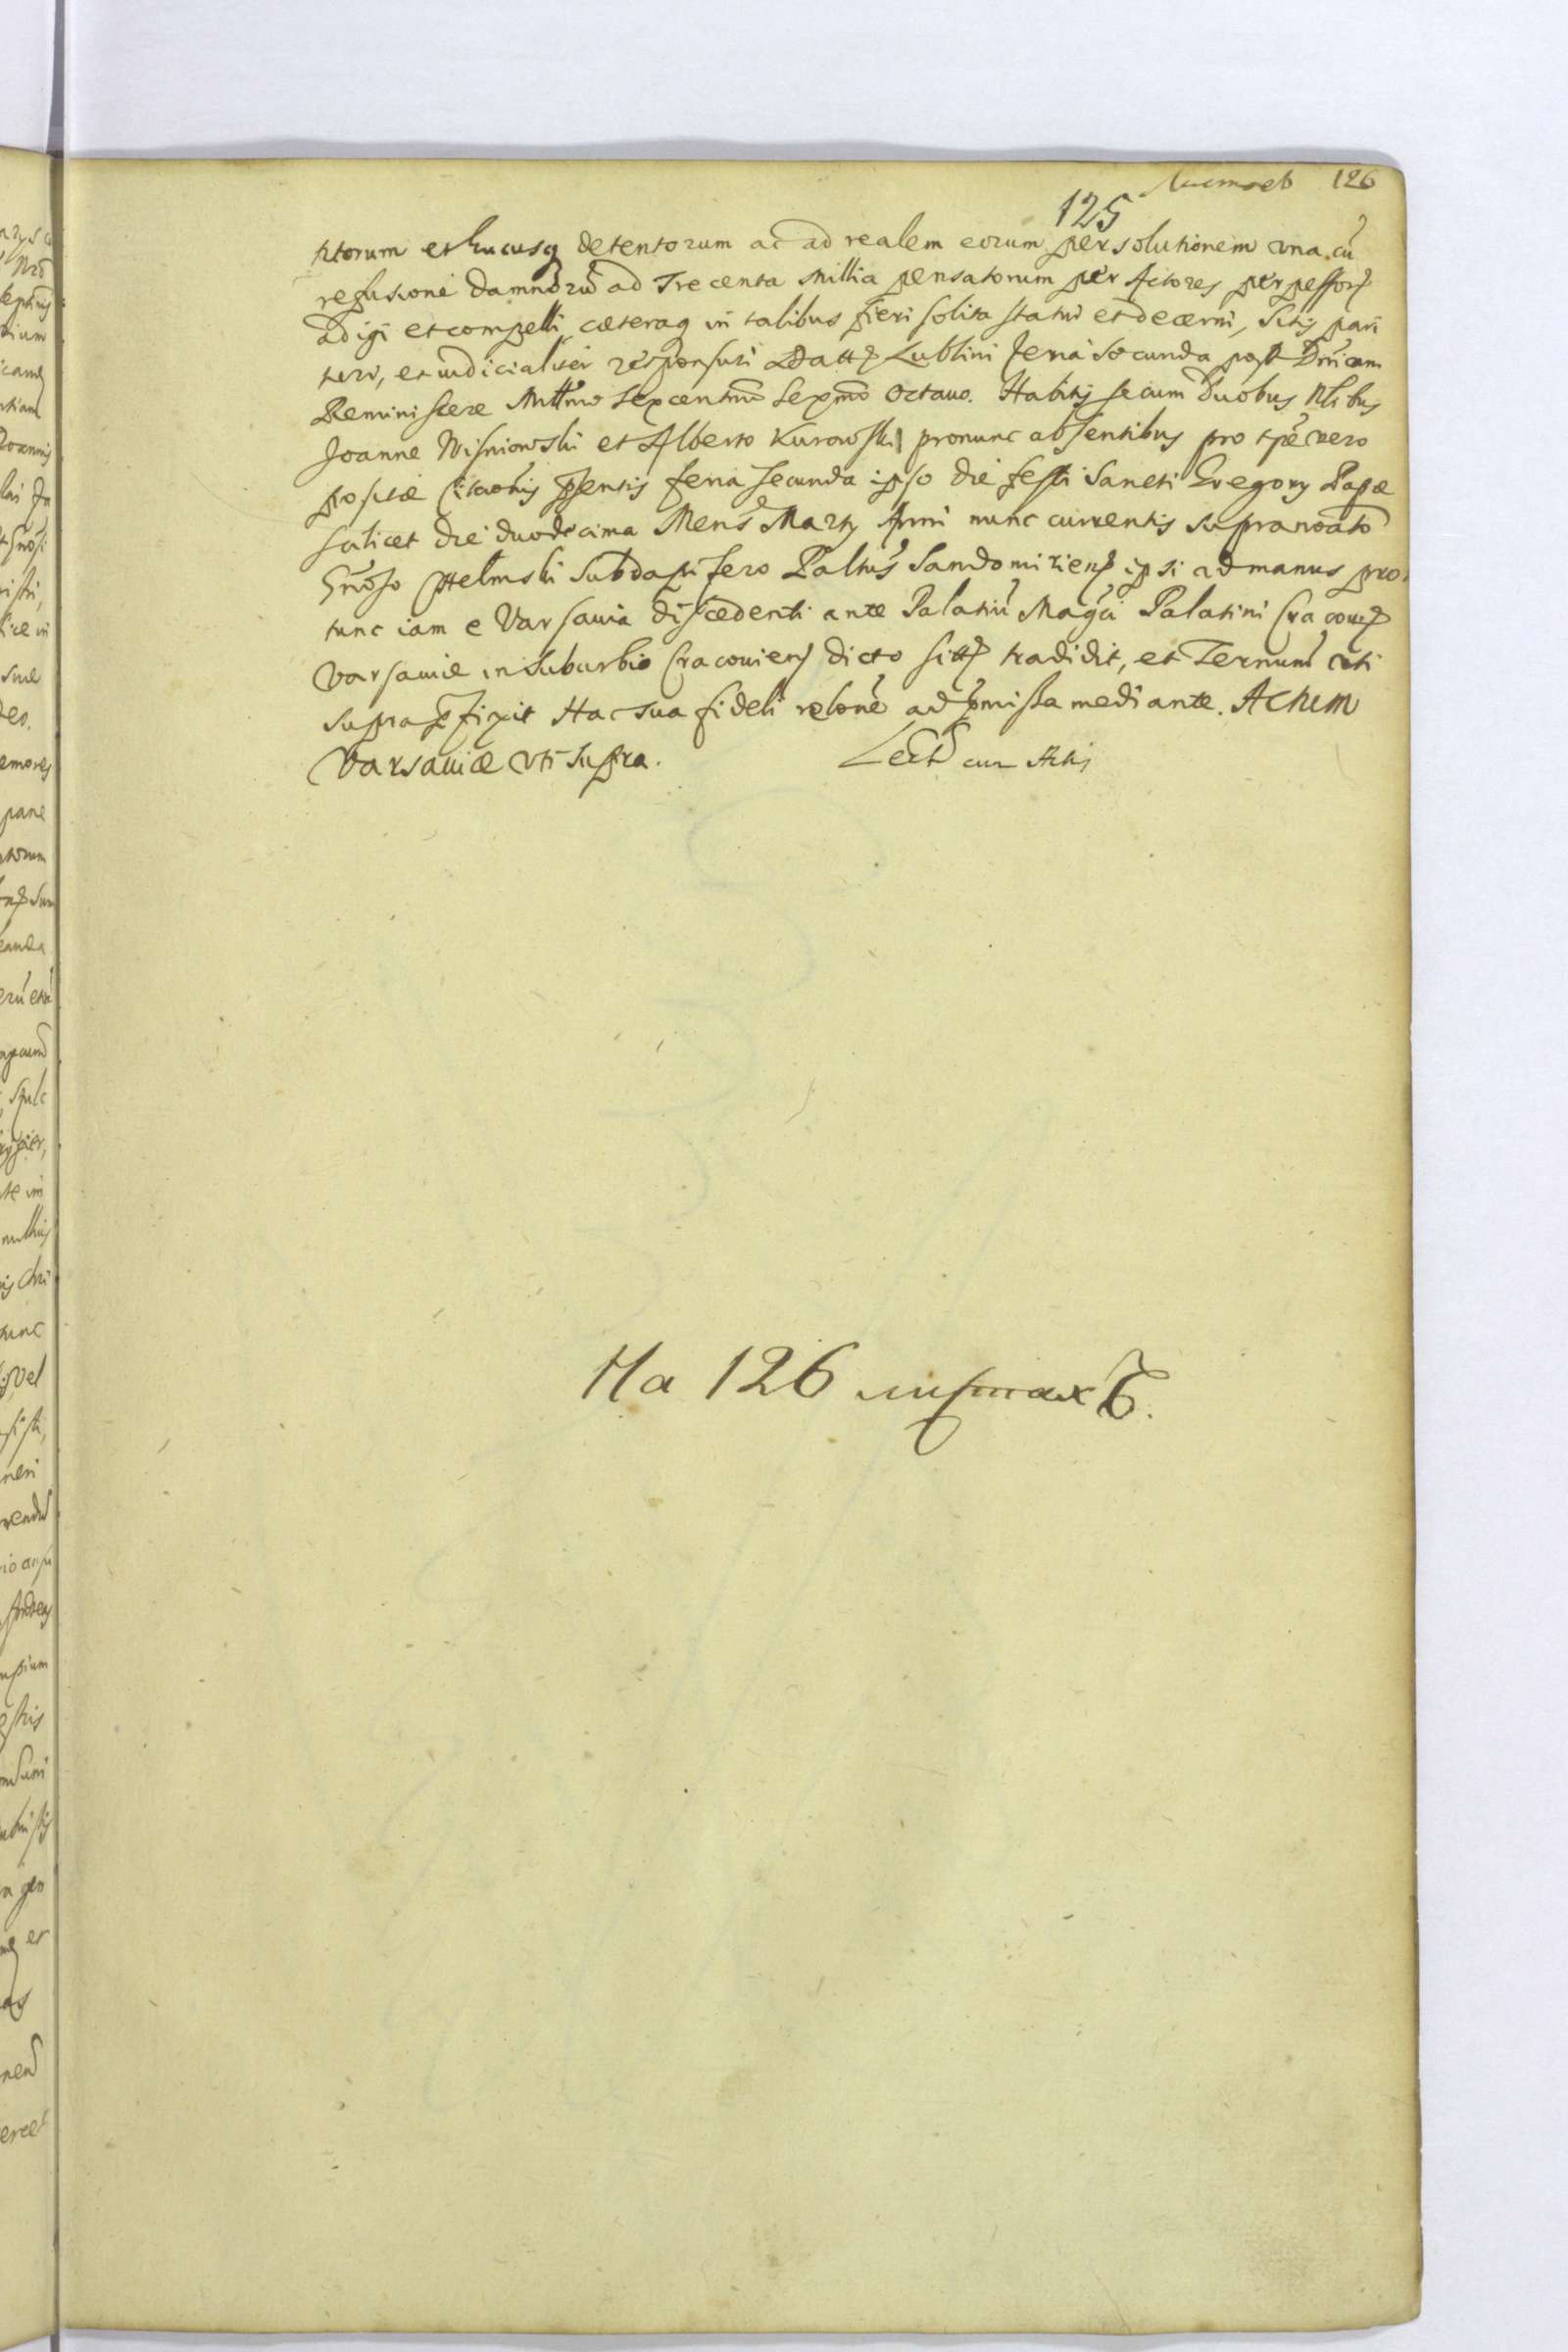 Листовъ 126
125
titorum et hucusq detentorum ac ad realem eorum persolutionem una cu
refusione damnorū ad Trecenta Millia pensatorum per Actores perpessorū
adigi et compelli, cæteraq in talibus fieri solita statui et decerni, Sitis pari
turi, et iudicialiter responsuri Datt Lublini Feria Secunda post Dnicam
Reminiscere Millmo Sexcentmo Sexgmo Octavo. Habitis secum Duobus Nlibus
Joanne Wisniowski et Alberto Kurowski pronunc absentibus pro tpe vero
positæ Citaonis pſentis feria secunda ipso die festi Sancti Gregory Papæ
scilicet die duodecima Mens Marty Anni nunc currentis supranoato
Gnoso Chelmski Subdapifero Paltus Sandomiriens ipsi ad manus pro
tunc iam e Varsavia discedenti ante Palatiū Magci Palatini Cracovien
Varsaviæ in suburbio Cracoviens dicto sitt tradidit, et Ternum uti
supra pfixit Hac sua fideli relone ad pmissa mediante. Actum
Varsaviæ uti supra. Lect cum Actis
На 126 листахъ.